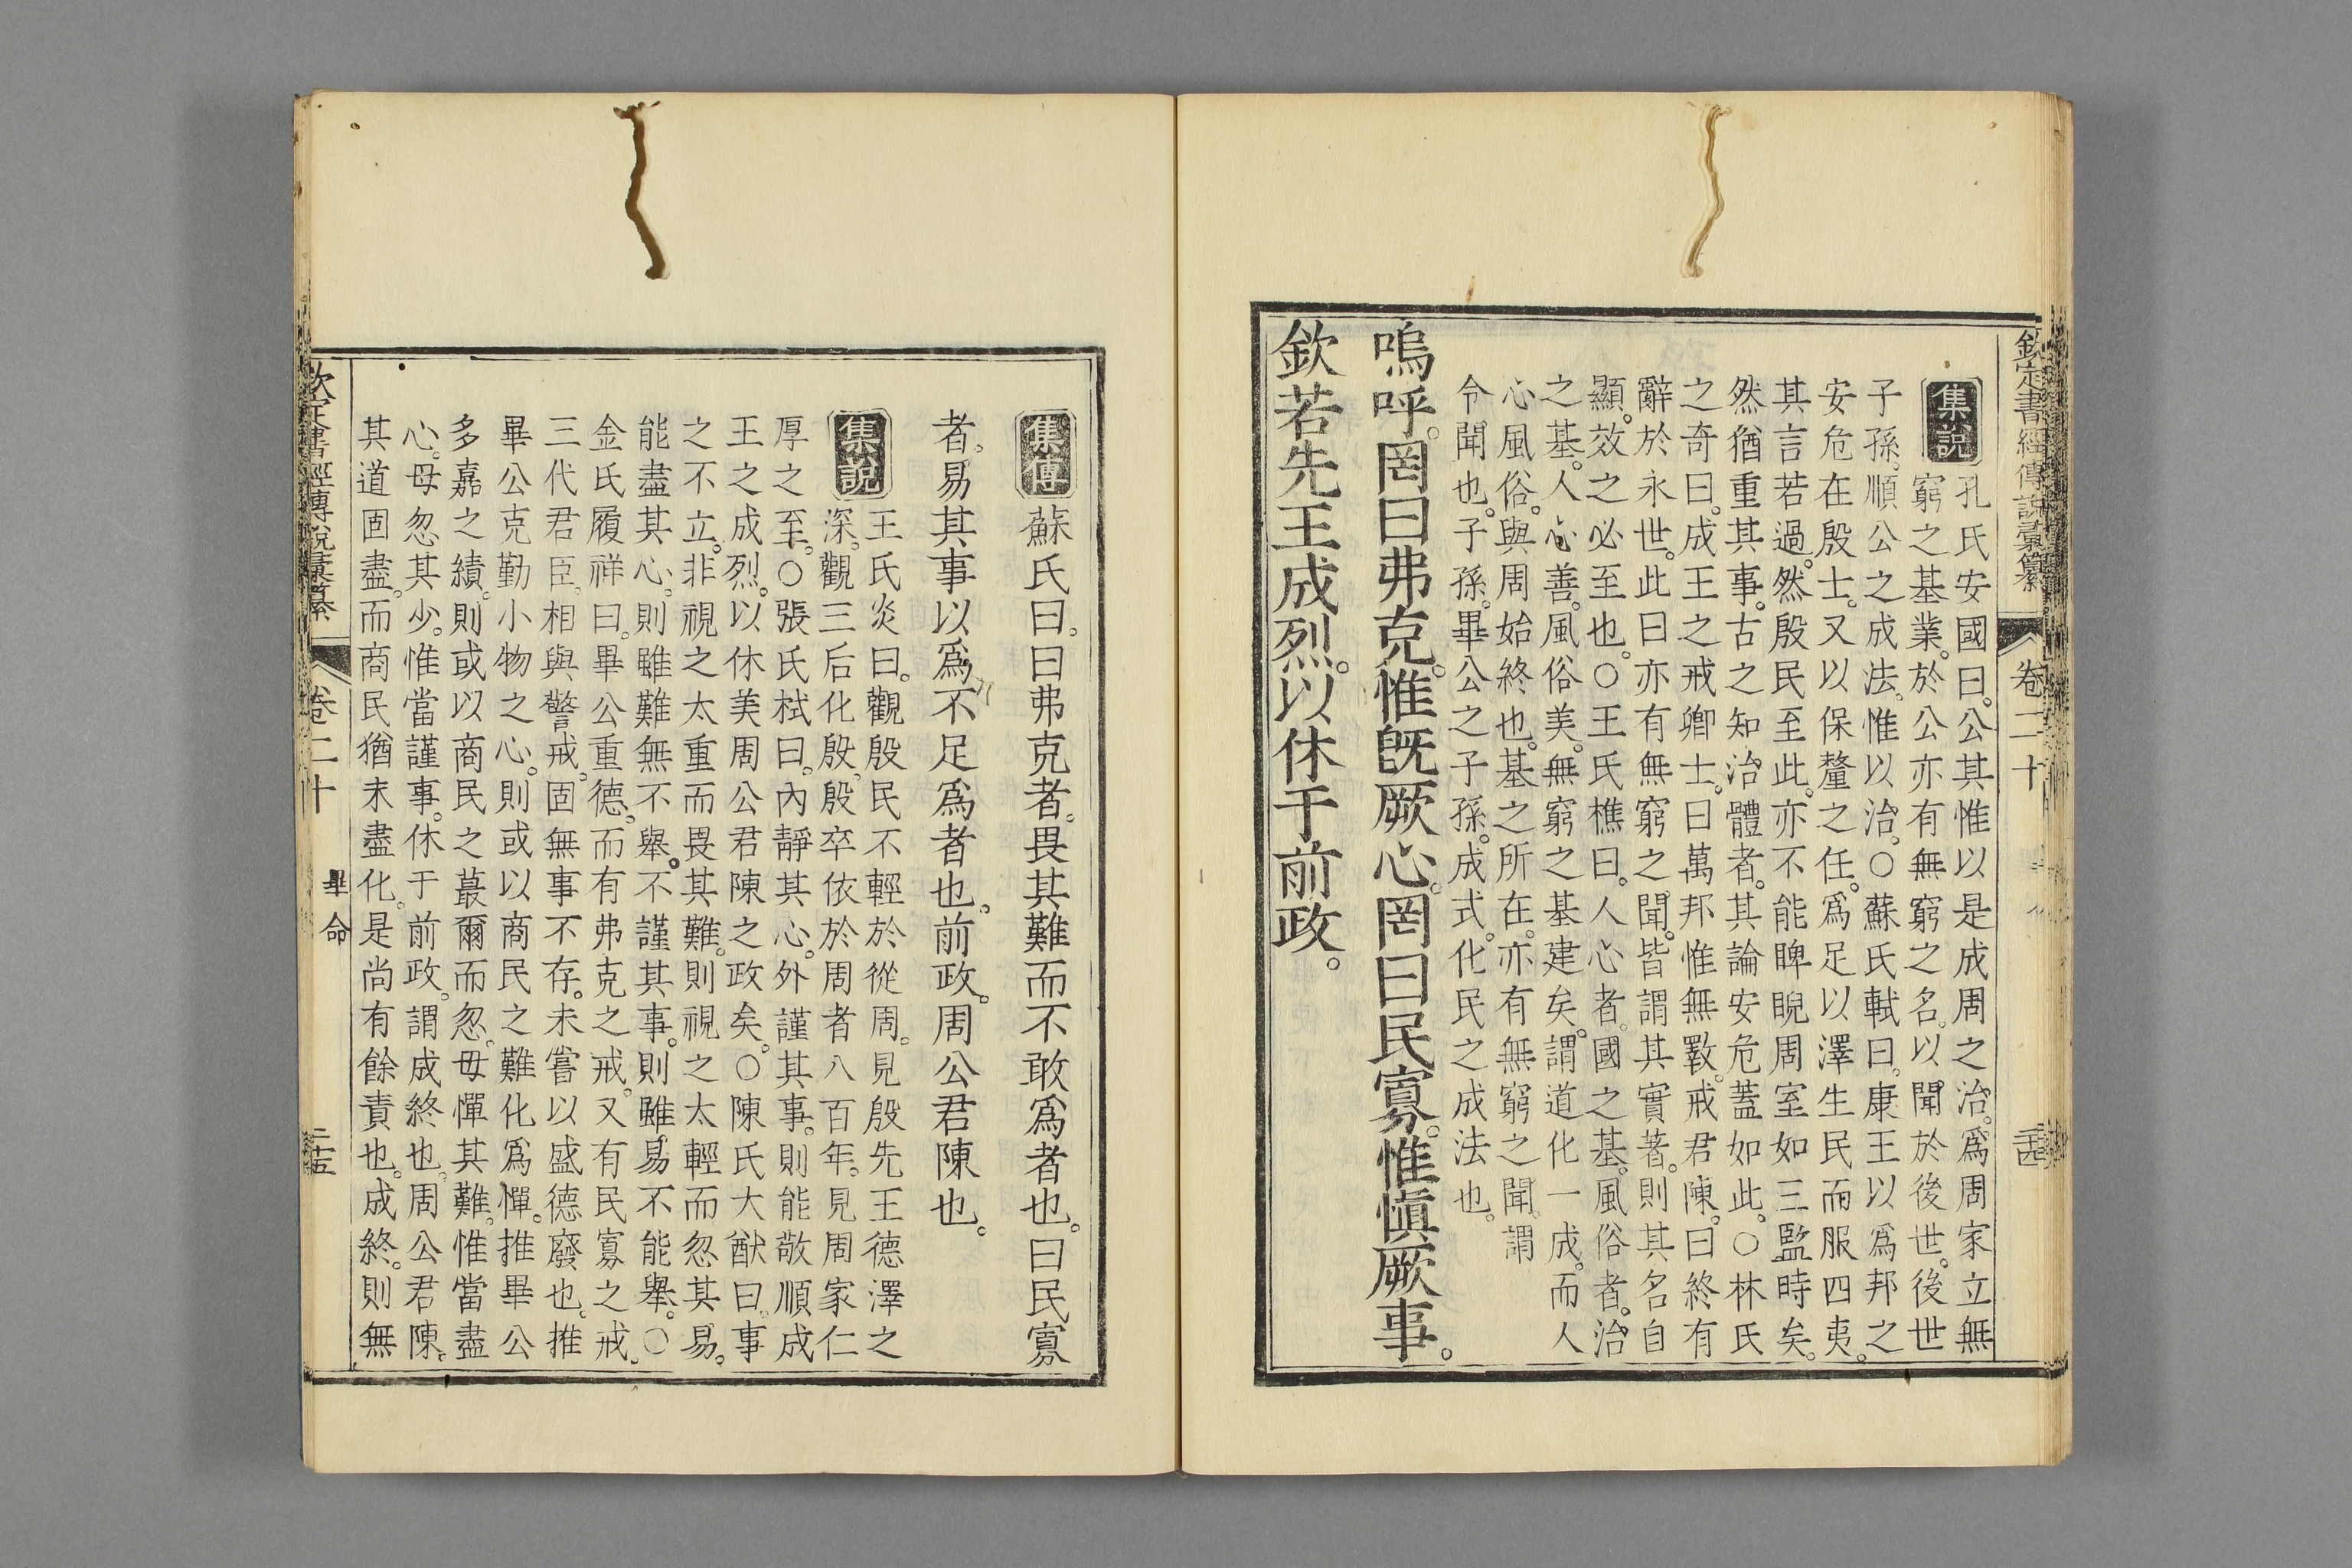 欽定書經傳說彙纂 卷二十 二十四
集說 孔氏安國曰。公其惟以是成周之治。爲周家立無
窮之基業。於公亦有無窮之名。以聞於後世。後世
子孫。順公之成法。惟以治。○蘇氏軾曰。康王以爲邦之
安危在殷士。又以保釐之任。爲足以澤生民而服四夷。
其言若過。然殷民至此。亦不能睥睨周室如三監時矣。
然猶重其事。古之知治體者。其論安危蓋如此。○林氏
之奇曰。成王之戒卿士。曰萬邦惟無斁。戒君陳。曰終有
辭於永世。此曰亦有無窮之聞。皆謂其實著。則其名自
顯。效之必至也。○王氏樵曰。人心者。國之基。風俗者。治
之基。人心善。風俗美。無窮之基建矣。謂道化一成。而人
心風俗。與周始終也。基之所在。亦有無窮之聞。謂
令聞也。子孫。畢公之子孫。成式。化民之成法也。
嗚呼。罔曰弗克。惟旣厥心。罔曰民寡。惟愼厥事。
欽若先王成烈。以休于前政。
集傳 蘇氏曰。曰弗克者。畏其難而不敢爲者也。曰民寡
者。易其事以爲不足爲者也。前政。周公君陳也。
集說 王氏炎曰。觀殷民不輕於從周。見殷先王德澤之
深。觀三后化殷。殷卒依於周者八百年。見周家仁
厚之至。○張氏栻曰。內靜其心。外謹其事。則能敬順成
王之成烈。以休美周公君陳之政矣。○陳氏大猷曰。事
之不立。非視之太重而畏其難。則視之太輕而忽其易。
能盡其心。則雖難無不舉。不謹其事。則雖易不能舉。○
金氏履祥曰。畢公重德。而有弗克之戒。又有民寡之戒。
三代君臣。相與警戒。固無事不存。未嘗以盛德廢也。推
畢公克勤小物之心。則或以商民之難化爲憚。推畢公
多嘉之績。則或以商民之蕞爾而忽。毋憚其難。惟當盡
心。毋忽其少。惟當謹事。休于前政。謂成終也。周公君陳。
其道固盡。而商民猶未盡化。是尚有餘責也。成終。則無
欽定書經傳說彙纂 卷二十 畢命 二十五